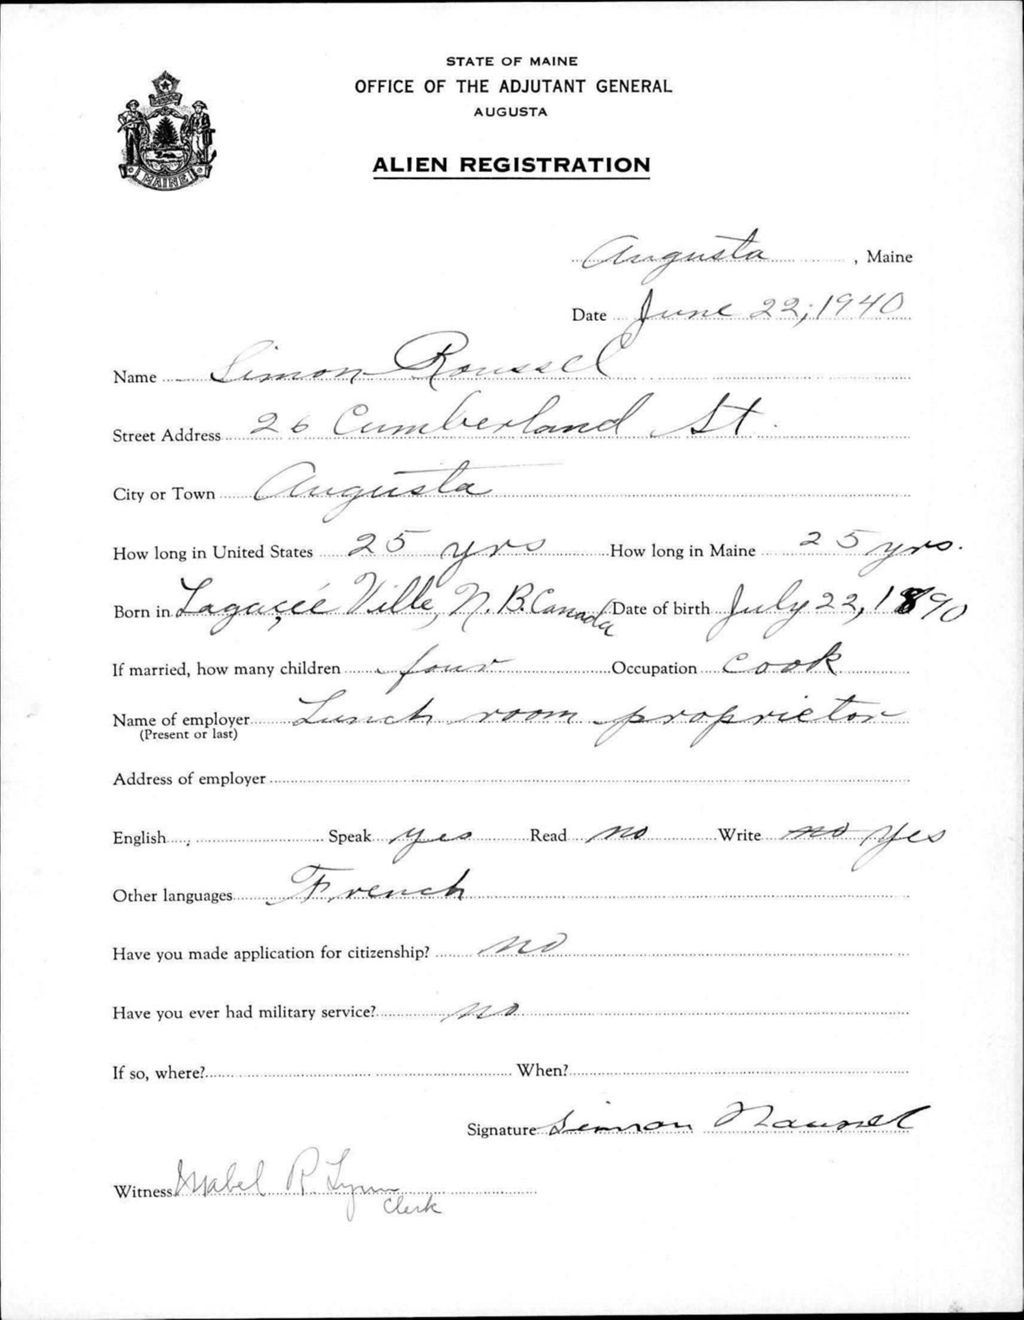 STATE OF MAINE
OFFICE OF THE ADJUTANT GENERAL
AUGUSTA
ALIEN REGISTRATION
MAINE
Augusta, Maine
Date June 22, 1940
Name Simon Roussel
Street Address 26 Cumberland St.
City or Town Augusta
How long in United States 25 yrs How long in Maine 25 yrs.
Born in Lagaçéé Ville, N.B. Canada Date of birth July 22, 1890
If married, how many children four Occupation cook
Name of employer Lunch room proprietor
(Present or last)
Address of employer
English Speak yes Read no Write no yes
Other languages French
Have you made application for citizenship? no
Have you ever had military service? no
If so, where? When?
Signature Simon Roussel
Witness Mabel R. Lynn
Clerk